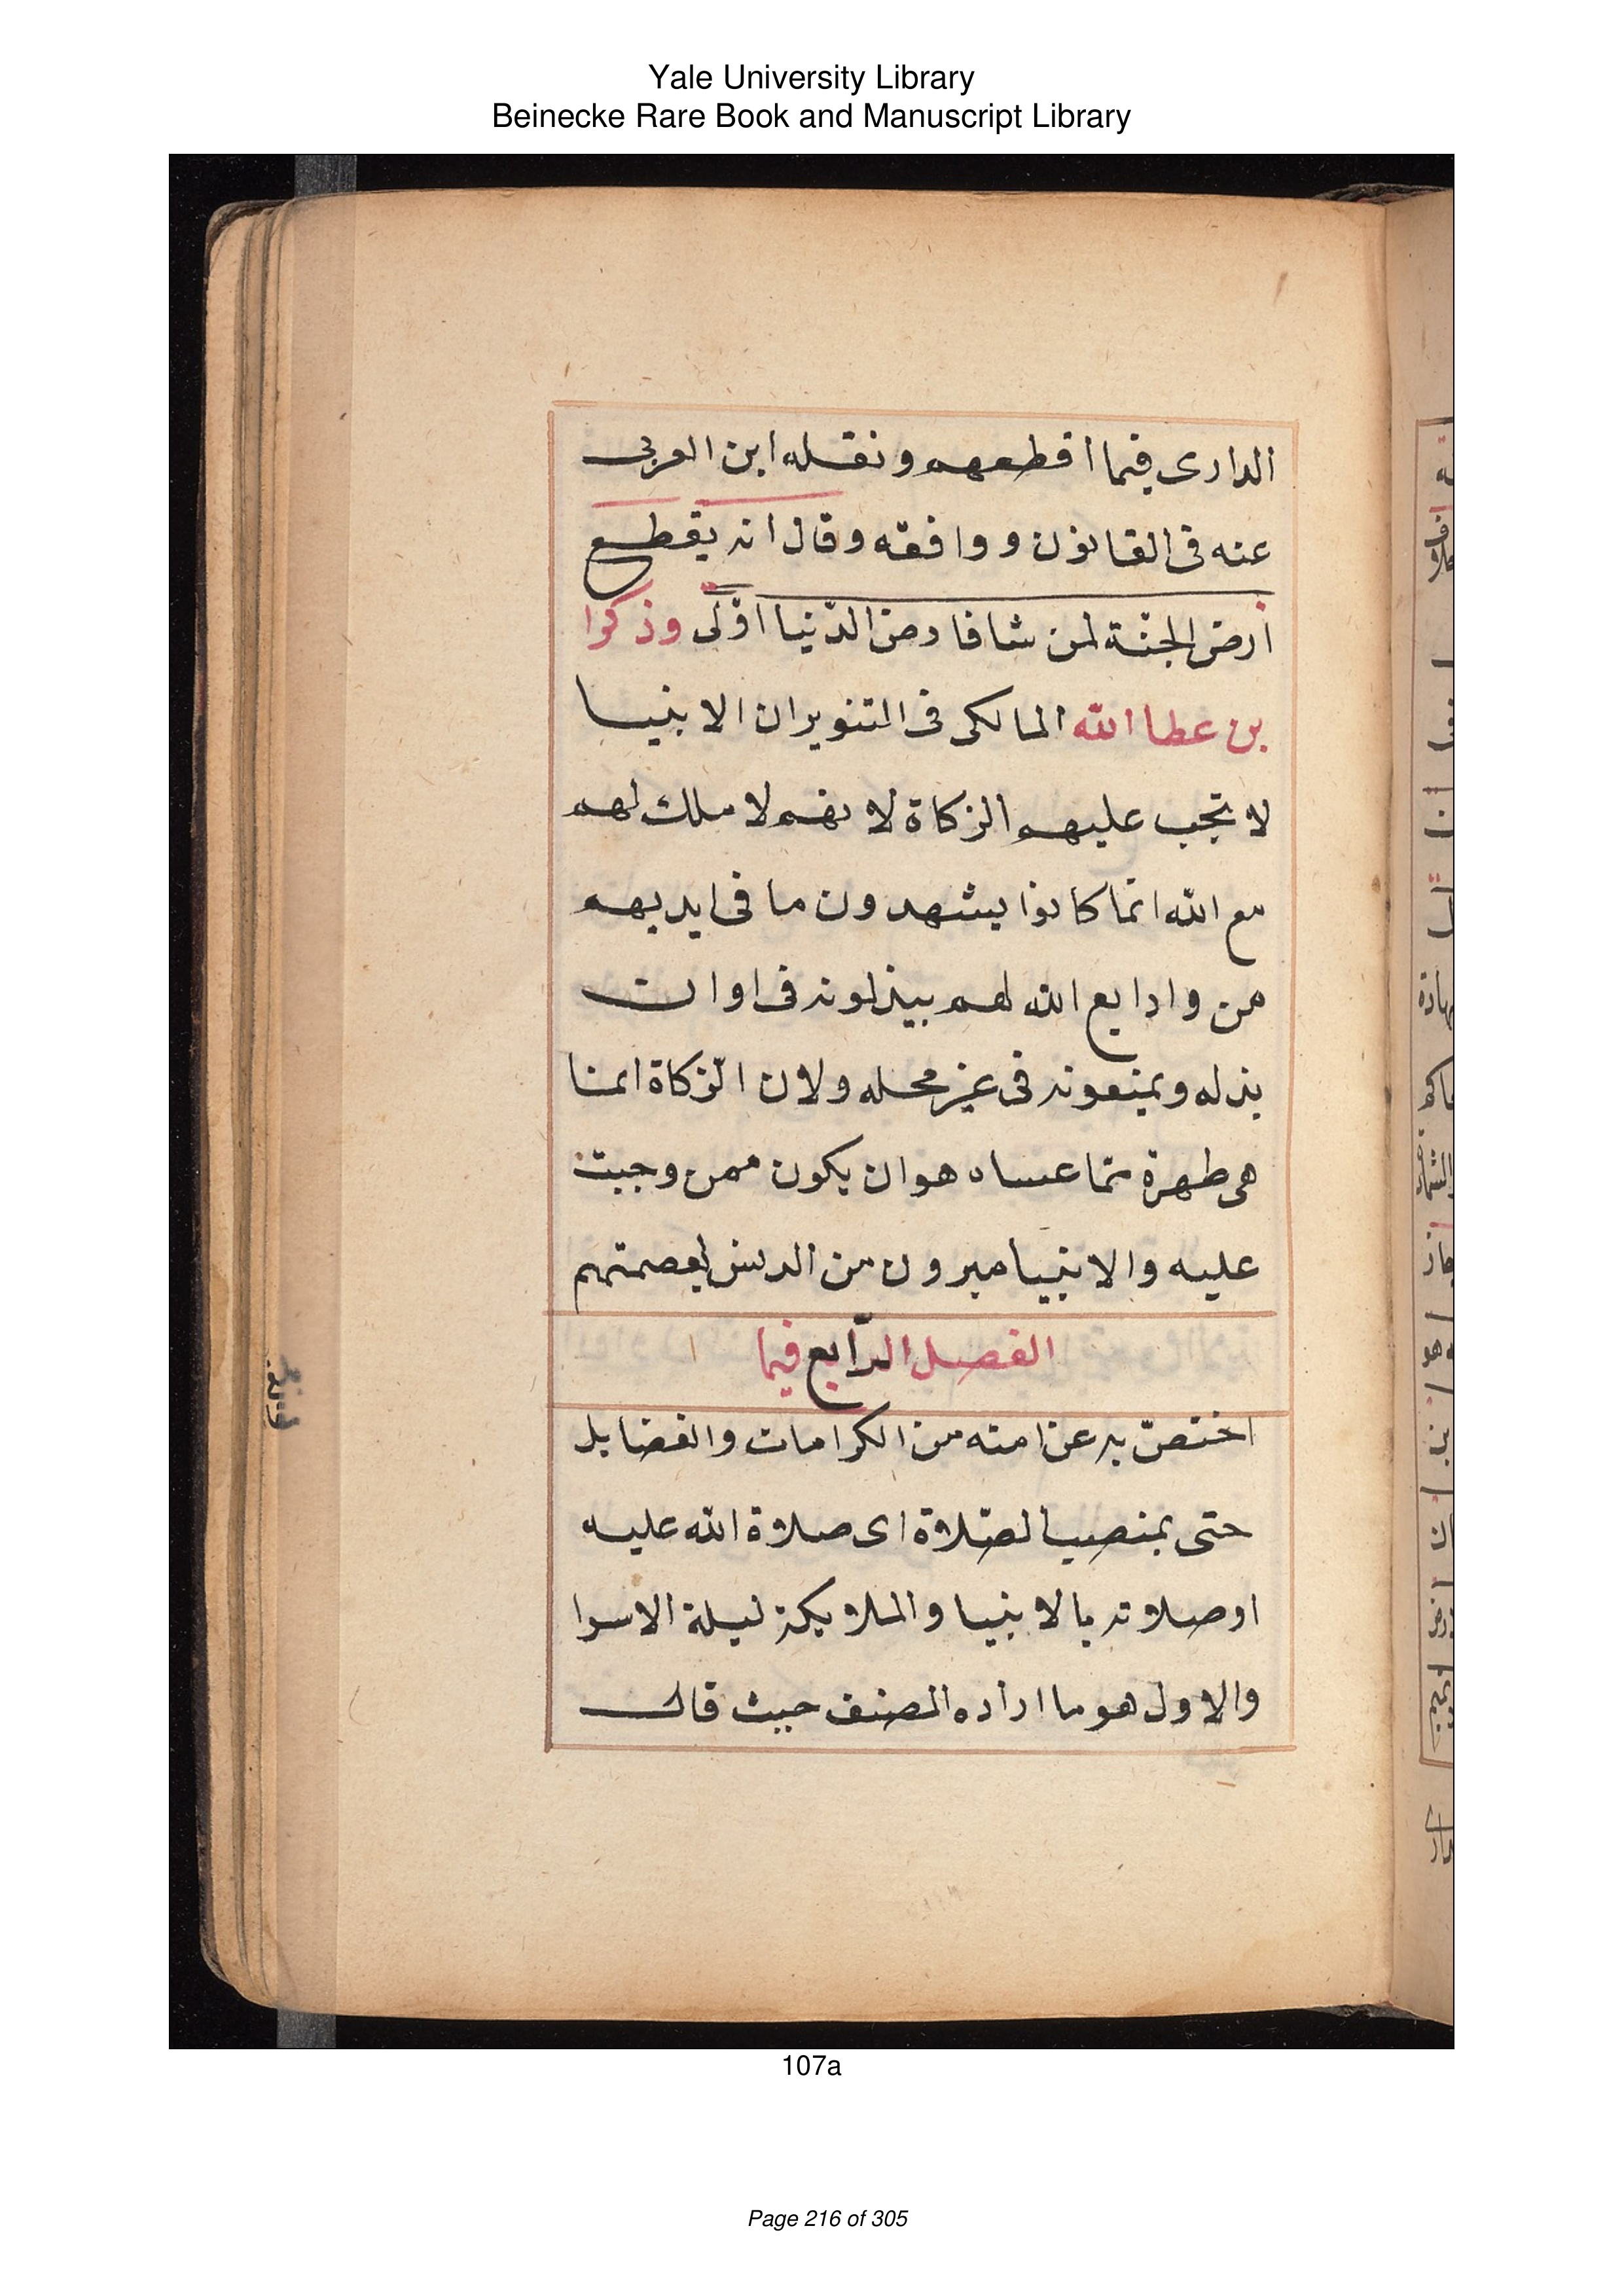 Yale University Library
Beinecke Rare Book and Manuscript Library
الدارى فيما اقطعهم ونقله ابن العربى
عنه فى القانون ووافقه وقال انه يقطع
أرض الجنّة لمن شا فارض الدّنيا اوّلى وذكرا
بن عطا الله المالكى فى التنويران الانبيا
لا تجب عليهم الزكاة لانهم لا ملك لهم
مع الله انما كانوا يشهدون ما فى ايديهم
من وادايع الله لهم يبذلونه فى اوان
بذله ويمنعونه فى غير محله ولان الزكاة انما
هى طهرة مما عساه هو ان يكون ممن وجبت
عليه والانبيا مبرون من الدنس لعصمتهم
الفصل الرّابع فيما
اختصّ به عن امته من الكرامات والفضايل
حتى بمنصب الصّلاة اى صلاة الله عليه
او صلاته بالانبيا والملايكة ليلة الاسرا
والاول هو ما اراده المصنف حيث قال
107a
Page 216 of 305